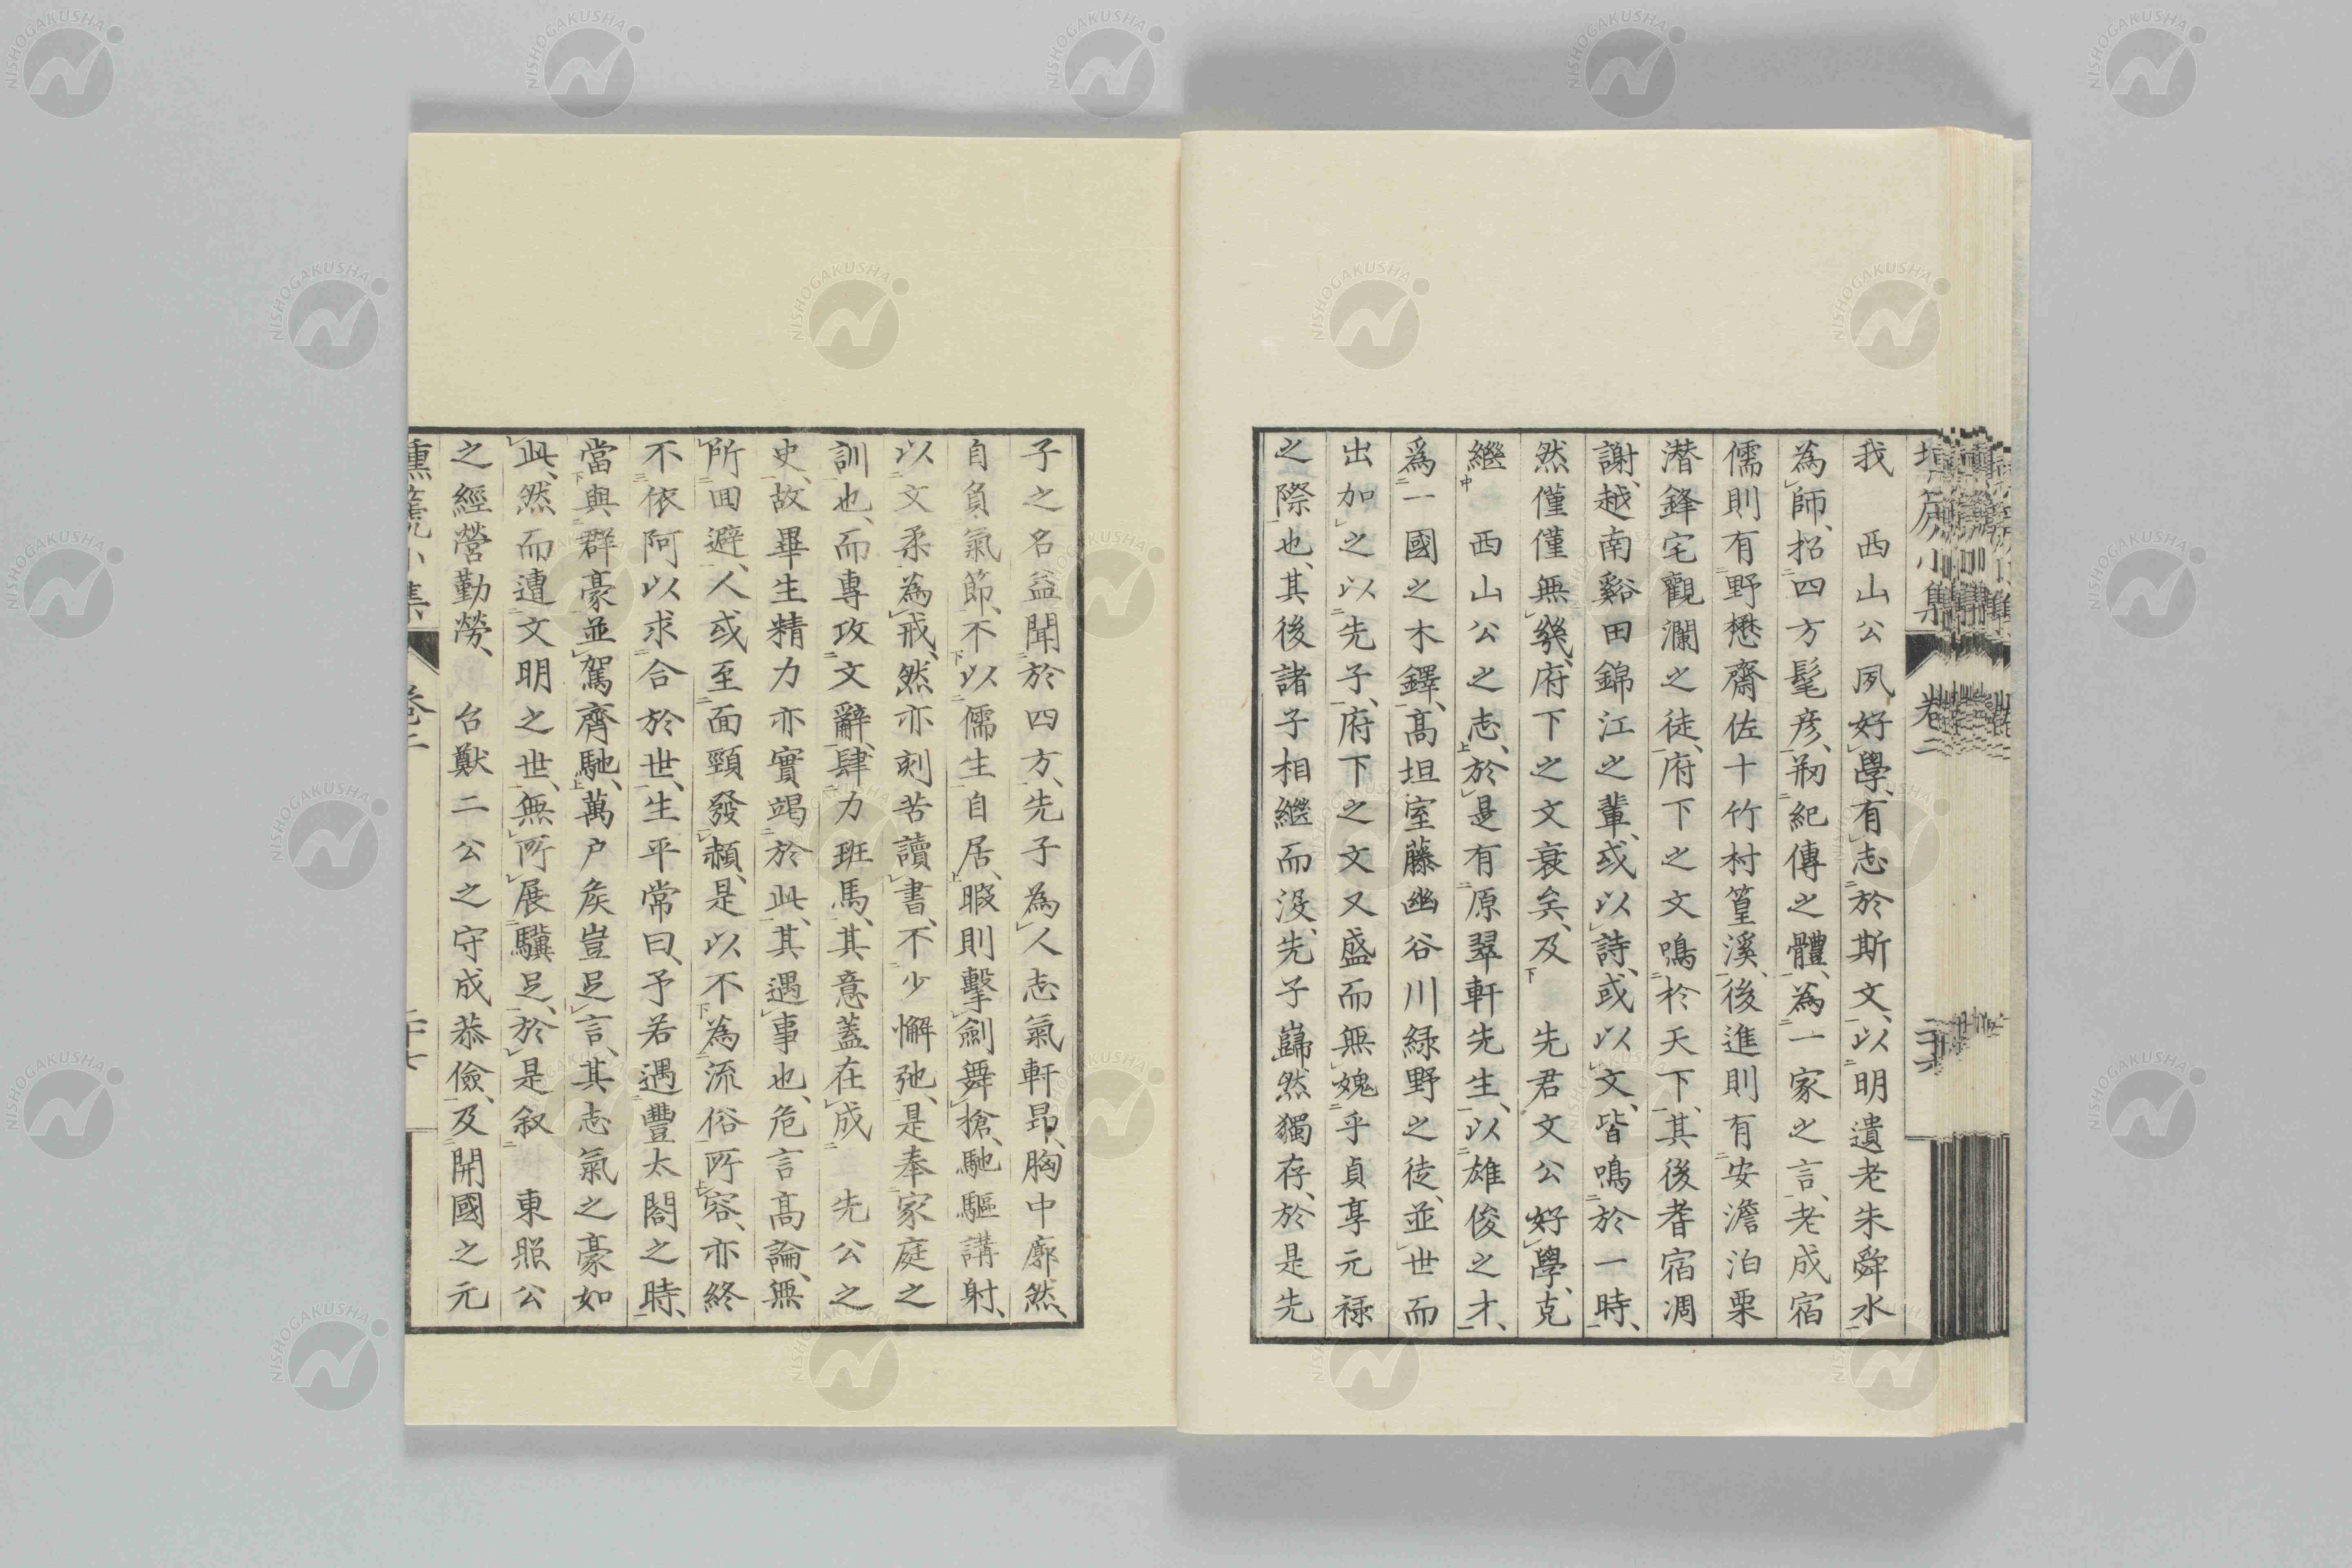 我　西山公夙好學、有志於斯文、以明遺老朱舜水
為師、招四方髦彦、刱紀傳之體、為一家之言、老成宿
儒則有野懋齋佐十竹村篁溪、後進則有安澹泊栗
潛鋒宅觀瀾之徒、府下之文鳴於天下、其後耆宿凋
謝、越南谿田錦江之輩、或以詩、或以文、皆鳴於一時、
然僅僅無幾、府下之文衰矣、及　先君文公好學、克
繼　西山公之志、於是有原翠軒先生、以雄俊之才、
爲一國之木鐸、高坦室藤幽谷川綠野之徒、並世而
出加之以先子、府下之文又盛而無媿乎貞享元祿
之際也、其後諸子相繼而沒、先子巋然獨存、於是先
子之名益聞於四方、先子為人志氣軒昂、胸中廓然、
自負氣節、不以儒生自居、暇則擊劍舞槍、馳驅講射、
以文柔為戒、然亦刻苦讀書、不少懈弛、是奉家庭之
訓也、而專攻文辭、肆力班馬、其意蓋在成　先公之
史、故畢生精力亦實竭於此、其遇事也、危言高論、無
所回避、人或至面頸發赬、是以不為流俗所容、亦終
不依阿以求合於世、生平常曰、予若遇豐太閤之時、
當與群豪並駕齊馳、萬戶矦豈足言、其志氣之豪如
此、然而遭文明之世、無所展驥足、於是叙　東照公
之經營勤勞、　台猷二公之守成恭儉、及開國之元
小集　卷二
卷二
NISHOGAKUSHA